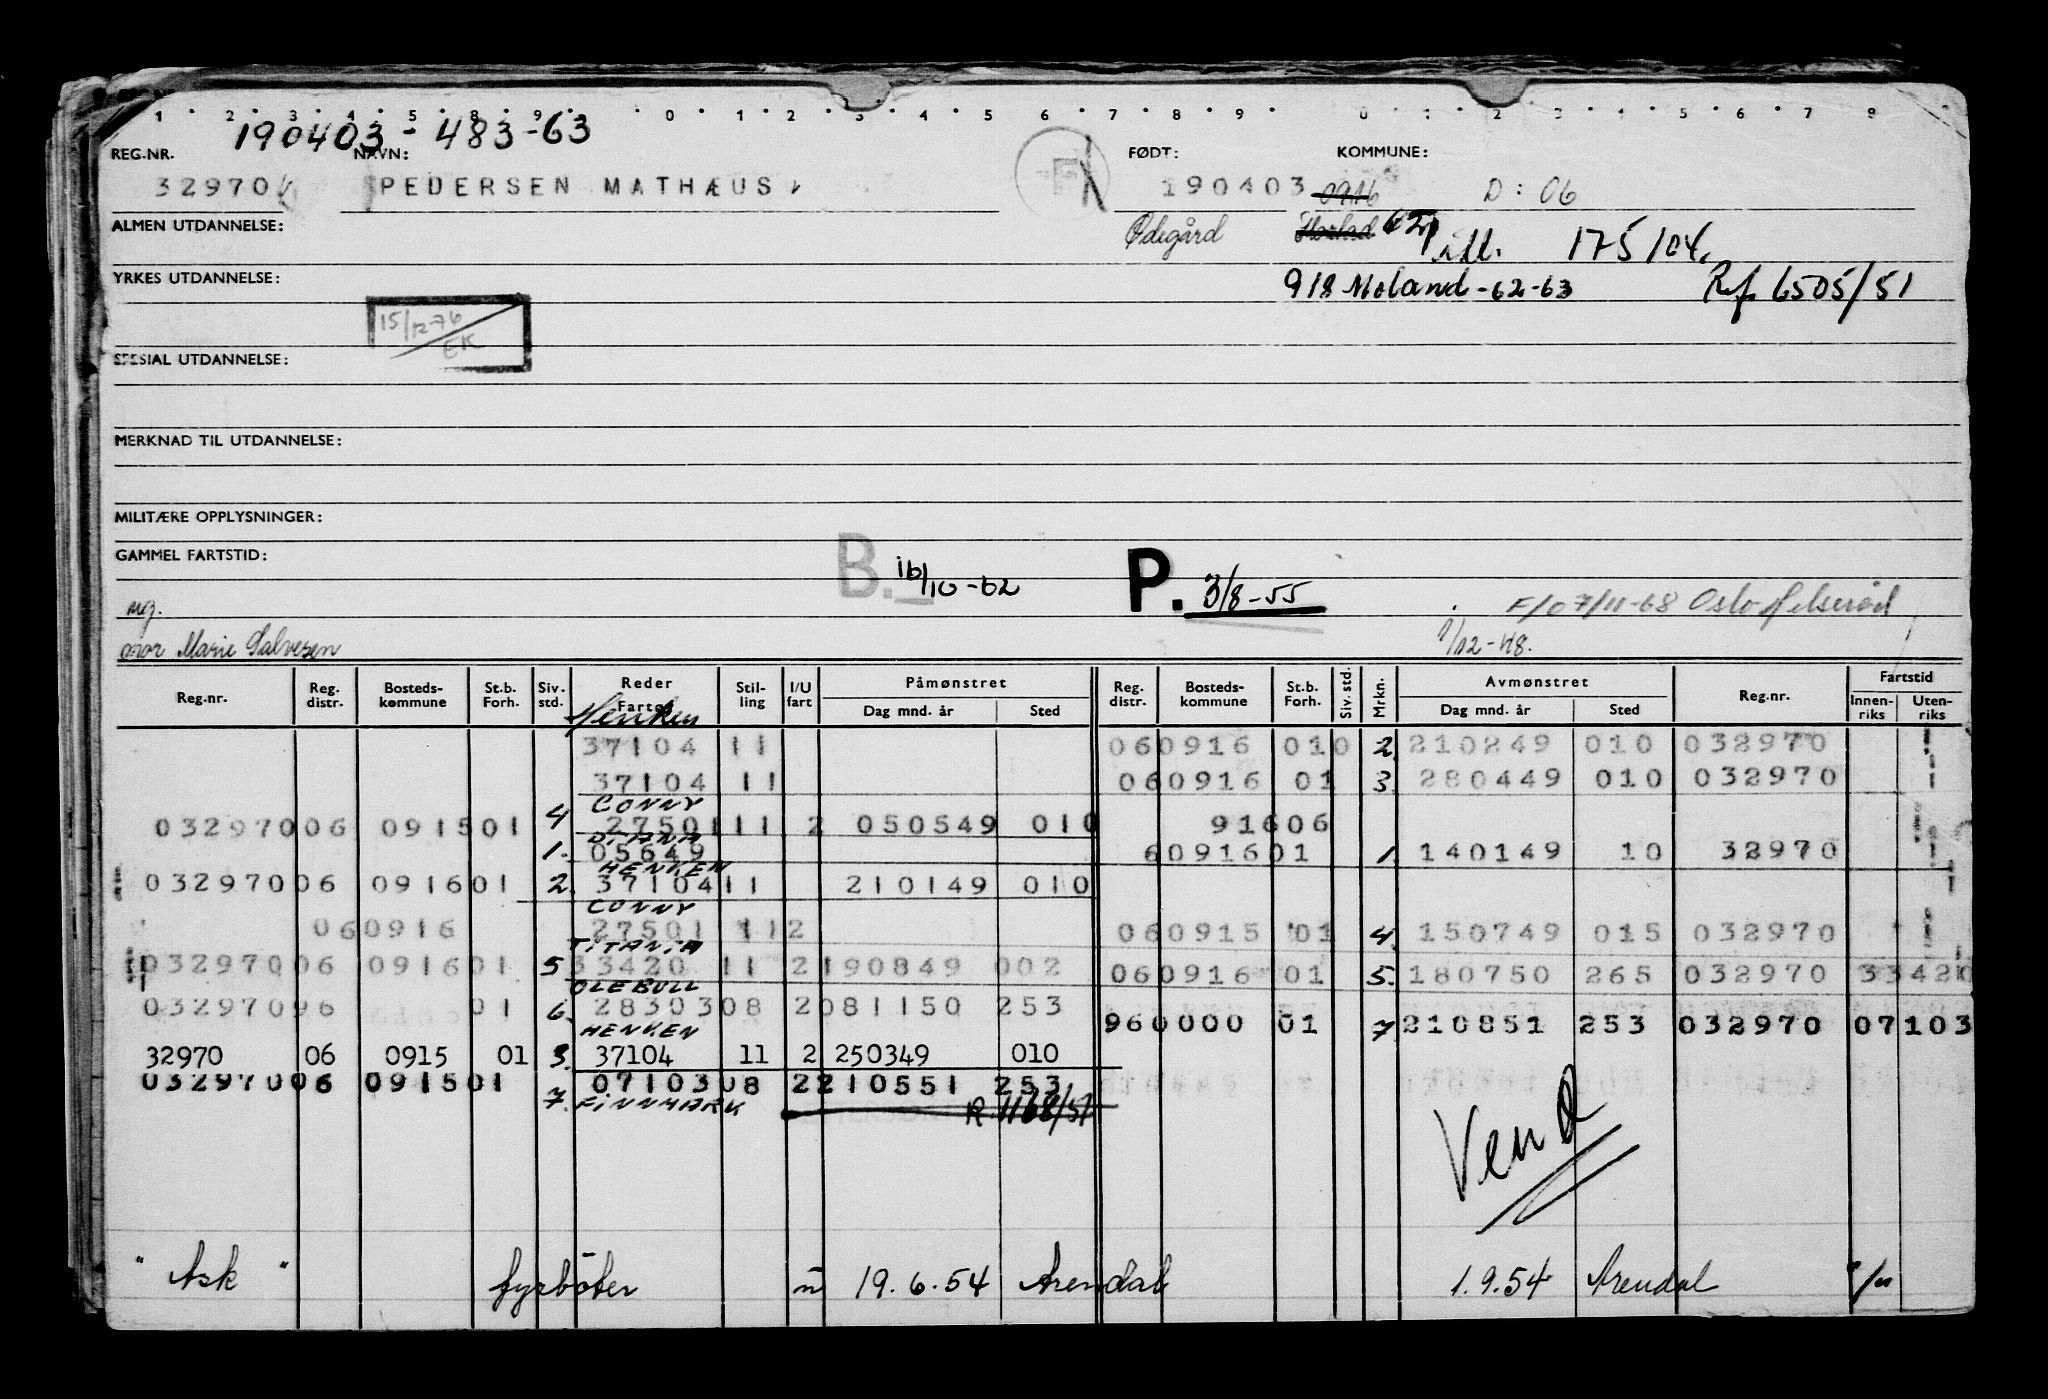 1 2 3 4 5 8 9 0 1 2 3 4 5 6 7 8 9 0 1 2 3 4 5 6 7 8
190403-483-63
REG.NR. NAVN: FØDT: KOMMUNE:
32970 PEDERSEN MATHÆUS F 190403 0916 D: 06
ALMEN UTDANNELSE: Ødegård 175/04.
YRKES UTDANNELSE: 918 Moland-62-63 Ref 6505/51
15/12-76
EK
SPESIAL UTDANNELSE:
MERKNAD TIL UTDANNELSE:
MILITÆRE OPPLYSNINGER:
GAMMEL FARTSTID:
B. 16/10-62 P. 3/8-55
ug. F/O 7/11-68 Oslo
mor Marie Salvesen 1/12-48.
Reg.nr. Reg. distr. Bosteds- kommune St.b. Forh. Siv. std. Reder Fartøy Stil- ling I/U fart Påmønstret Dag mnd. år Sted Reg. distr. Bosteds- kommune St.b. Forh. Siv. std. Mrkn. Avmønstret Dag mnd. år Sted Reg.nr. Fartstid Innen- riks Uten- riks
Henken
37104 11 060916 010 2. 210249 010 032970
37104 11 060916 01 3. 280449 010 032970
CONNY
03297006 091501 4 27501 11 2 050549 010 91606
DIANA
1. 05649 6091601 1. 140149 10 32970
HENKEN
03297006 091601 2. 37104 11 210149 010
CONNY
060916 27501 112 060915 01 4. 150749 015 032970
TITANIA
03297006 091601 5 33420 11 2 190849 002 060916 01 5. 180750 265 032970 33420
OLE BULL
03297096 01 6. 28303 08 2 081150 253
960000 01 7 210851 253 032970 07103
HENKEN
32970 06 0915 01 3. 37104 11 2 250349 010
03297006 091501 07103 08 2 210551 253
7. FINNMARK R. 1168/51
Vend
"Ask" fyrbøter u 19.6.54 Arendal 1.9.54 Arendal